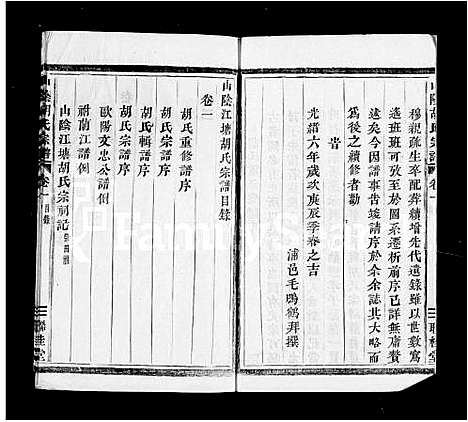 山陰胡氏宗譜 卷一
穆親疏生卒配葬續增先代遺錄雖以世數寫
遠班班可致至於圖系遷析前序已詳無庸贅
述矣今因譜事告竣請序於余余誌其大略而
爲後之續修者勸
旹
光緒六年歲次庚辰季春之吉
浦邑毛鳴鶴拜撰
聯桂堂
山陰江塘胡氏宗譜目錄
卷一
胡氏重修譜序
胡氏宗譜序
胡氏輯譜序
胡氏譜序
歐陽文忠公譜例
祔蘭江譜例
山陰江塘胡氏宗祠記
山陰胡氏宗譜 卷一 目錄
聯桂堂